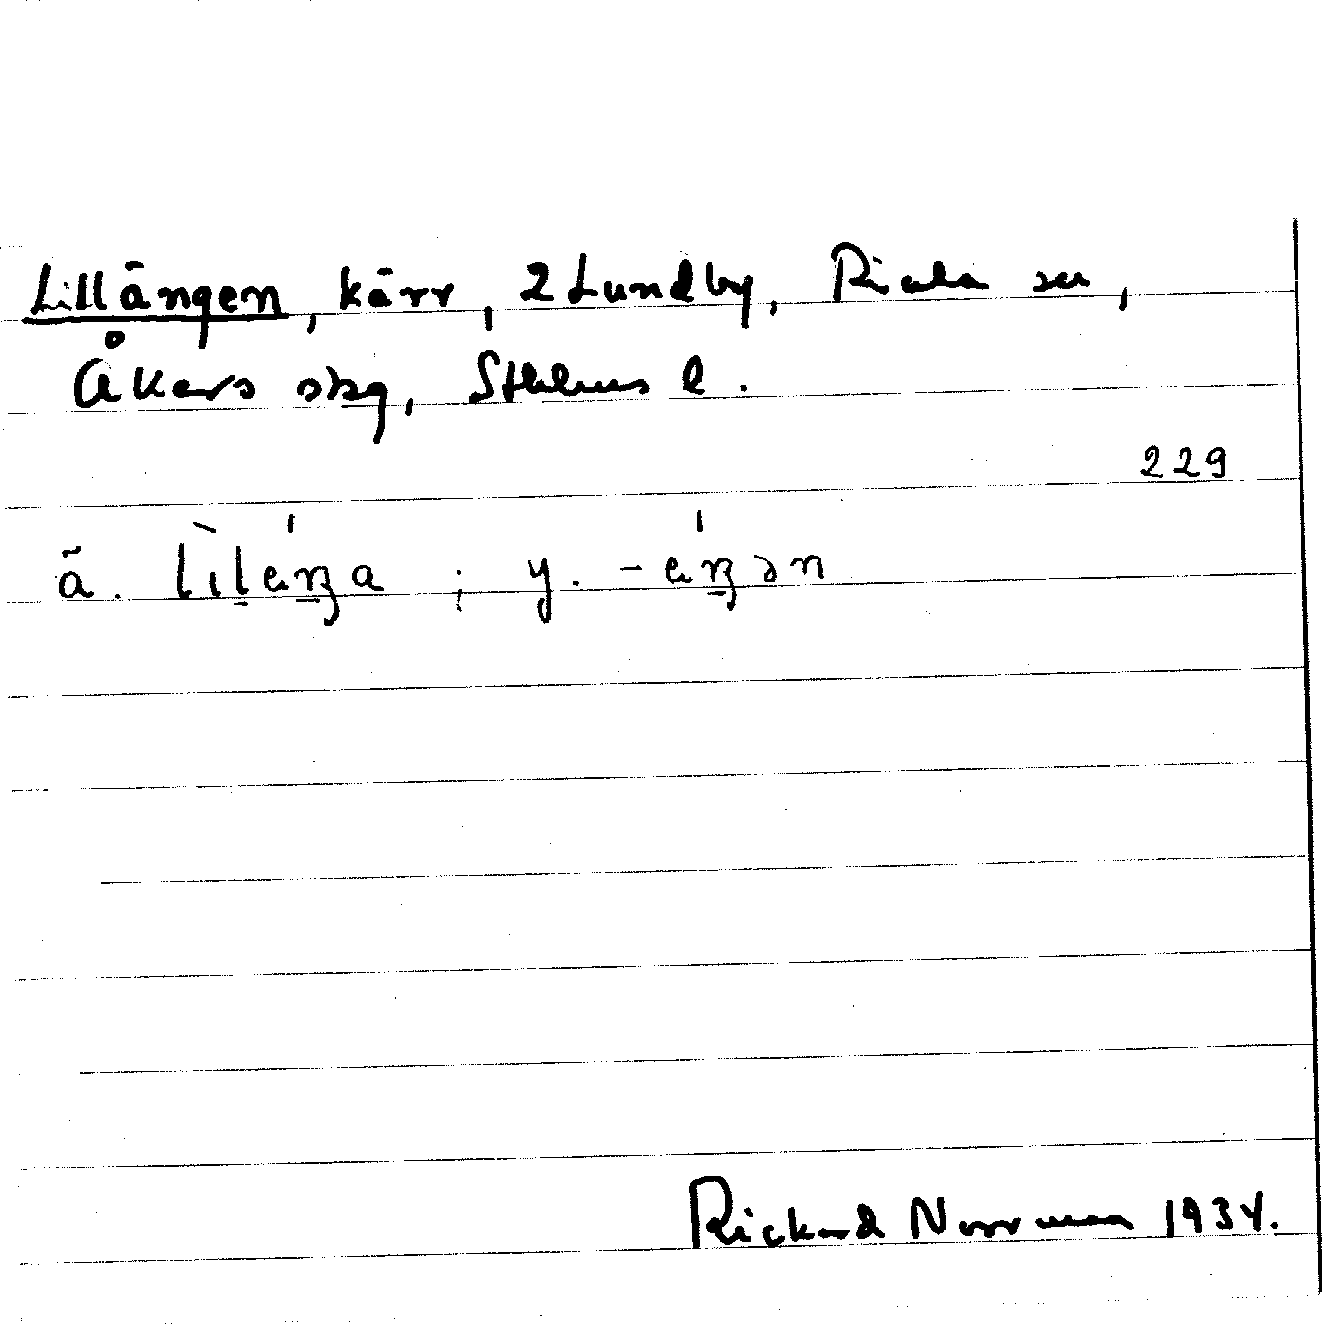 Lillängen, kärr, 2 Lundby, Riala sn,
Åkers skg, Sthlms l.
229
ä. lìlæŋa ; y. -æŋən
Rickard Norrman 1934.